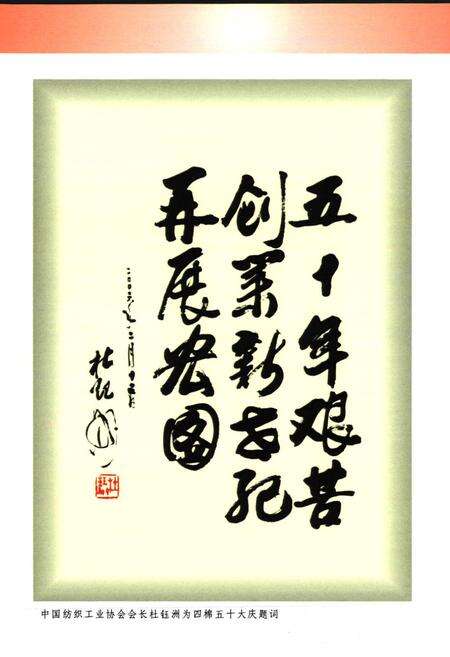 五十年艰苦
创业新世纪
再展宏图
二〇〇六年二月十三日
杜钰洲
中国纺织工业协会会长杜钰洲为四棉五十大庆题词